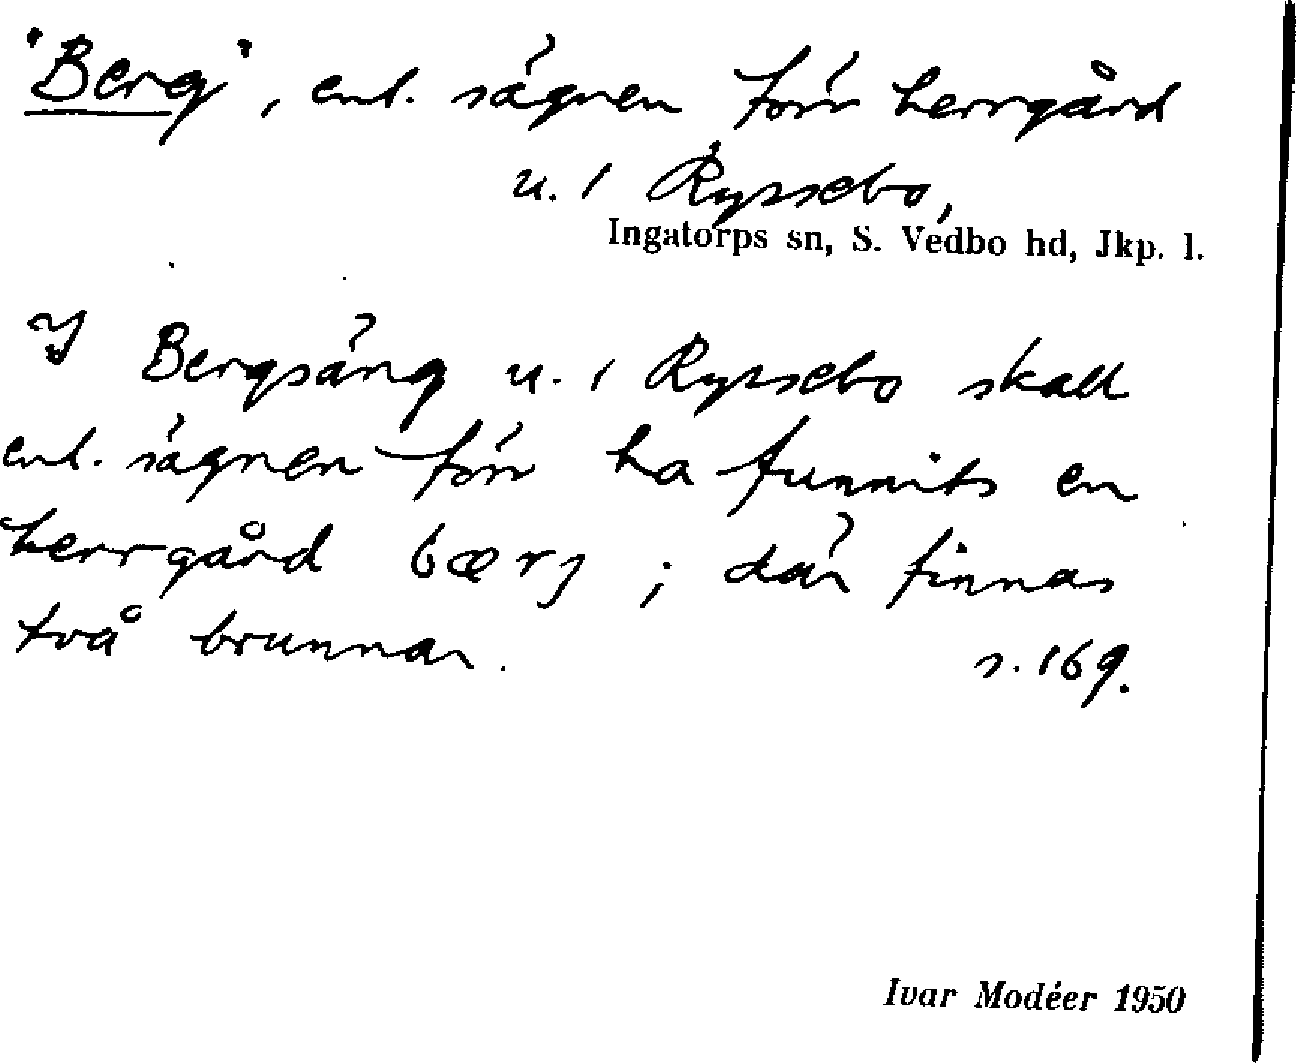 "Berg", enl. sägnen förr herrgård
u. 1 Ryssebo,
Ingatorps sn, S. Vedbo hd, Jkp. l.
I Bergsäng u. 1 Ryssebo skall
enl. sägnen förr ha funnits en
herrgård bærj ; där finnas
två brunnar. s. 169.
Ivar Modéer 1950